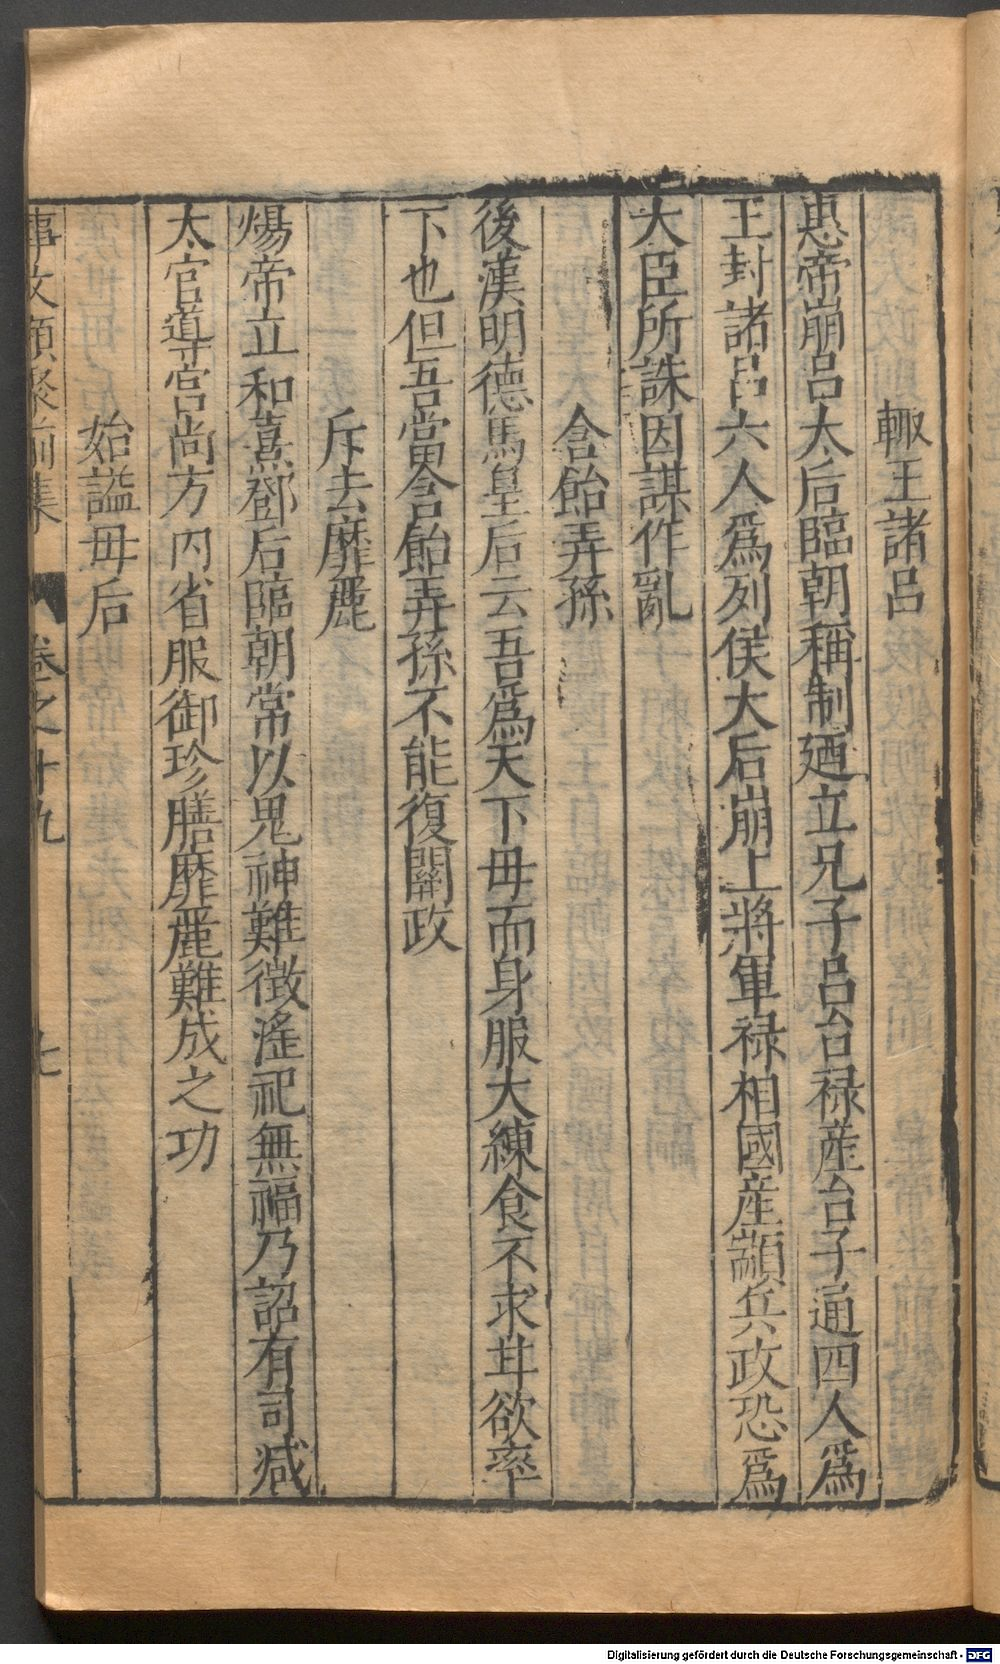 輙王諸吕
惠帝崩吕太后臨朝稱制廼立兄子吕台禄産台子通四人爲
王封諸吕六人爲列侯大后崩上將軍禄相國産顓兵政恐爲
大臣所誅因謀作亂
含飴弄孫
後漢明德馬皇后云吾爲天下毋而身服大練食不求甘欲率
下也但吾當含飴弄孫不能復關政
斥去靡麗
煬帝立和熹鄧后臨朝常以鬼神難徴滛祀無福乃詔有司减
太官導官尚方内省服御珍膳靡麗難成之功
始謚毋后
事文類聚前集 卷之十九 七
Digitalisierung gefördert durch die Deutsche Forschungsgemeinschaft - DFG